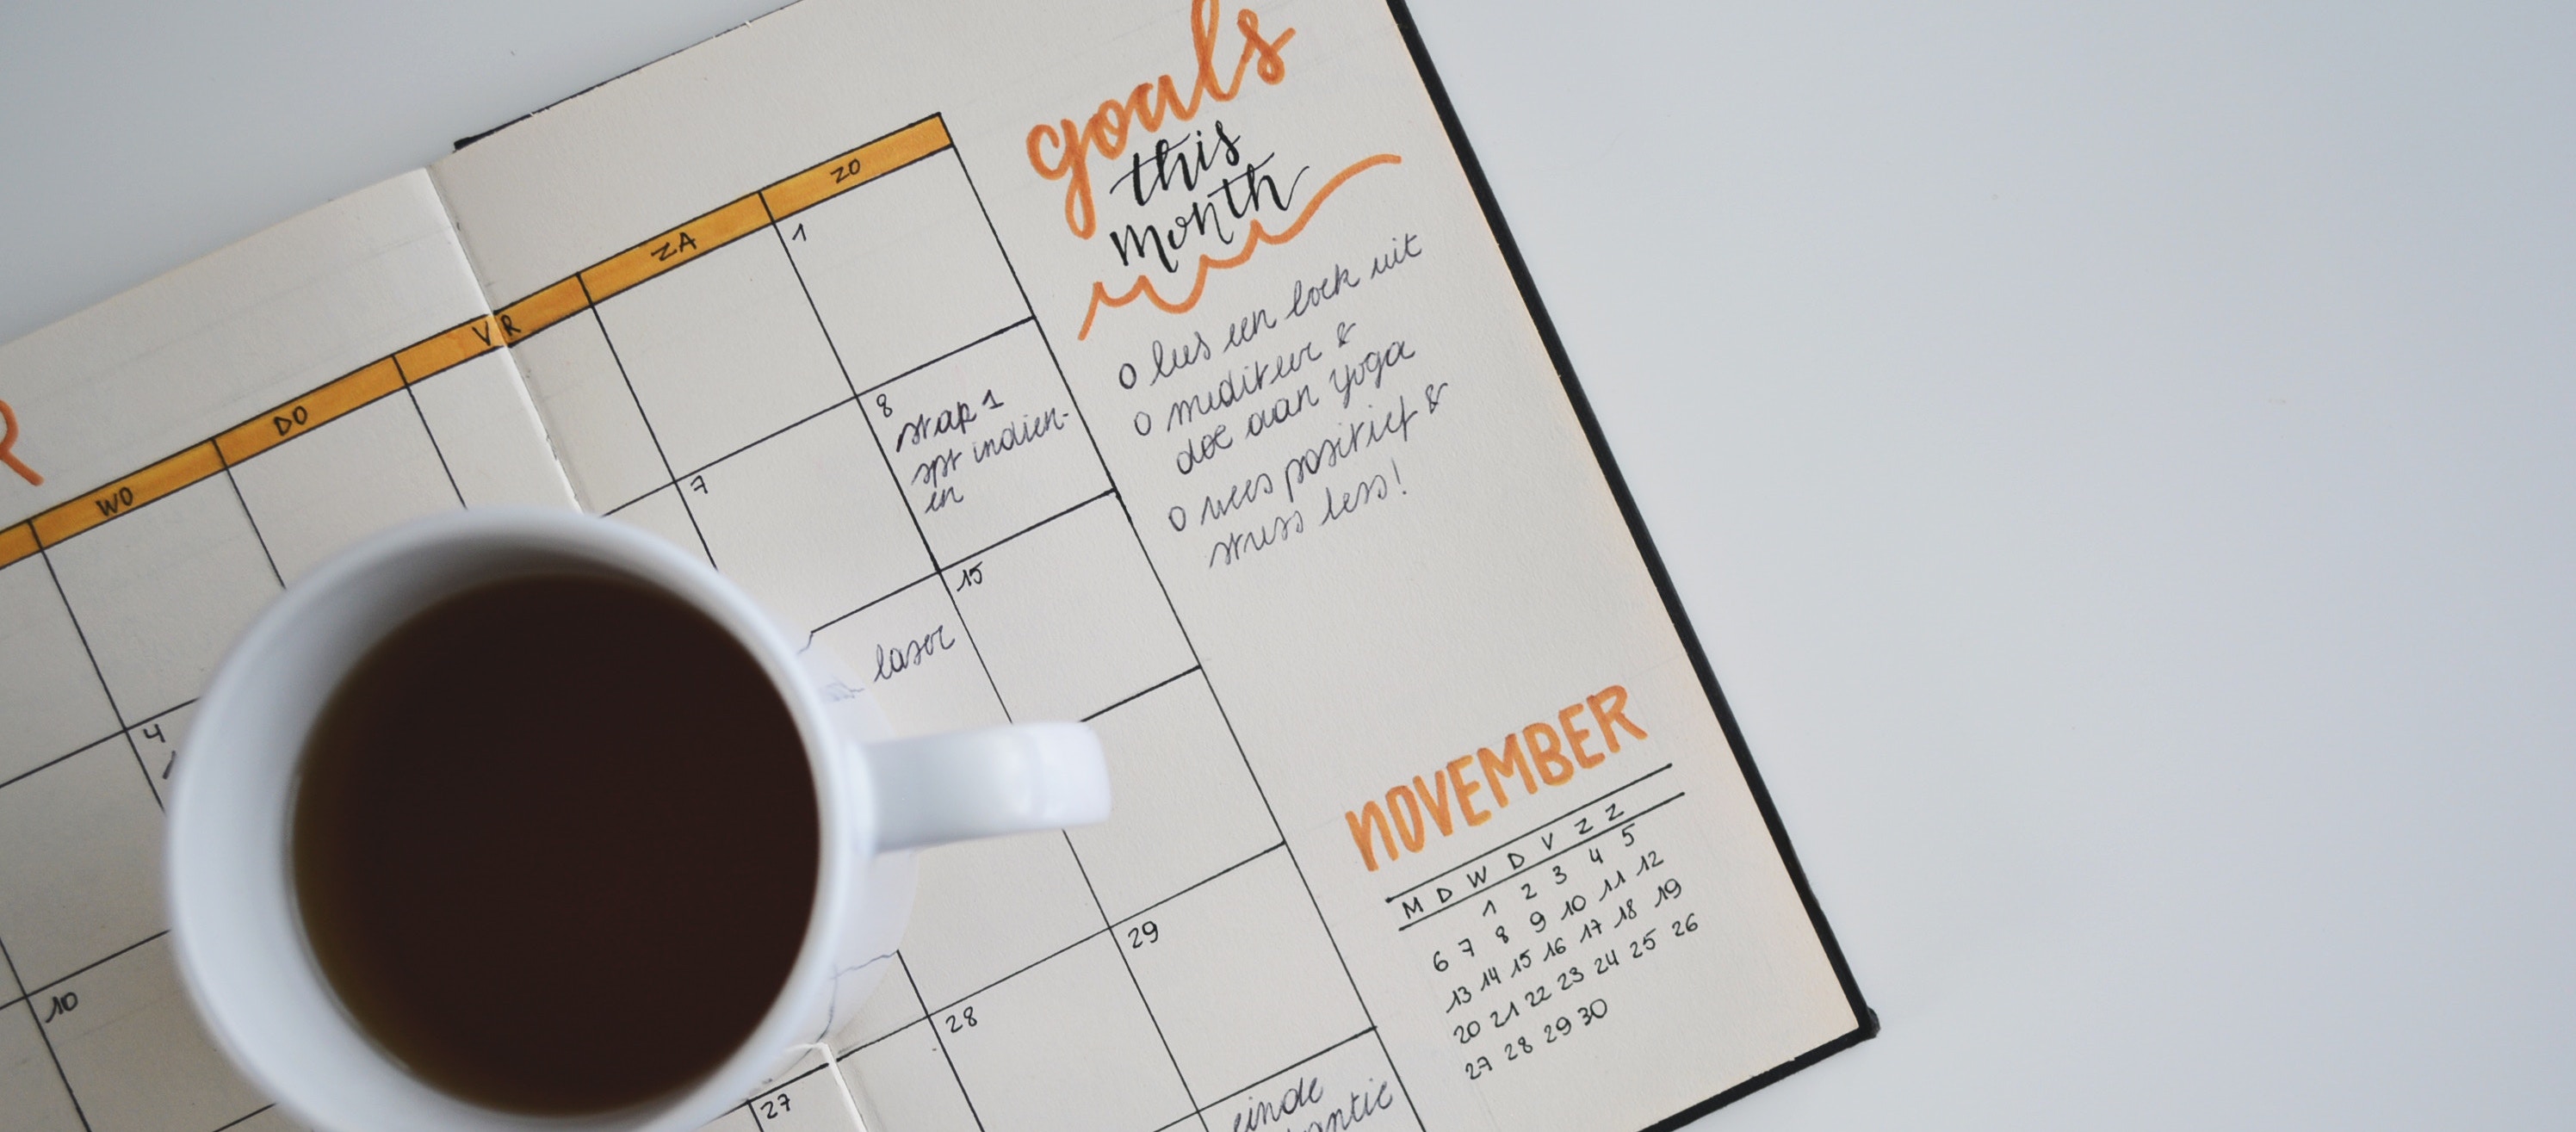 R
WO DO VR ZA ZO
1
7
8
stap 1
spr indien-
en
4
laser
15
10
27
28
29
einde
goals
this
month
o lees een boek uit
o mediteer &
doe aan yoga
o wees positief &
stress less!
NOVEMBER
M D W D V Z Z
1 2 3 4 5
6 7 8 9 10 11 12
13 14 15 16 17 18 19
20 21 22 23 24 25 26
27 28 29 30